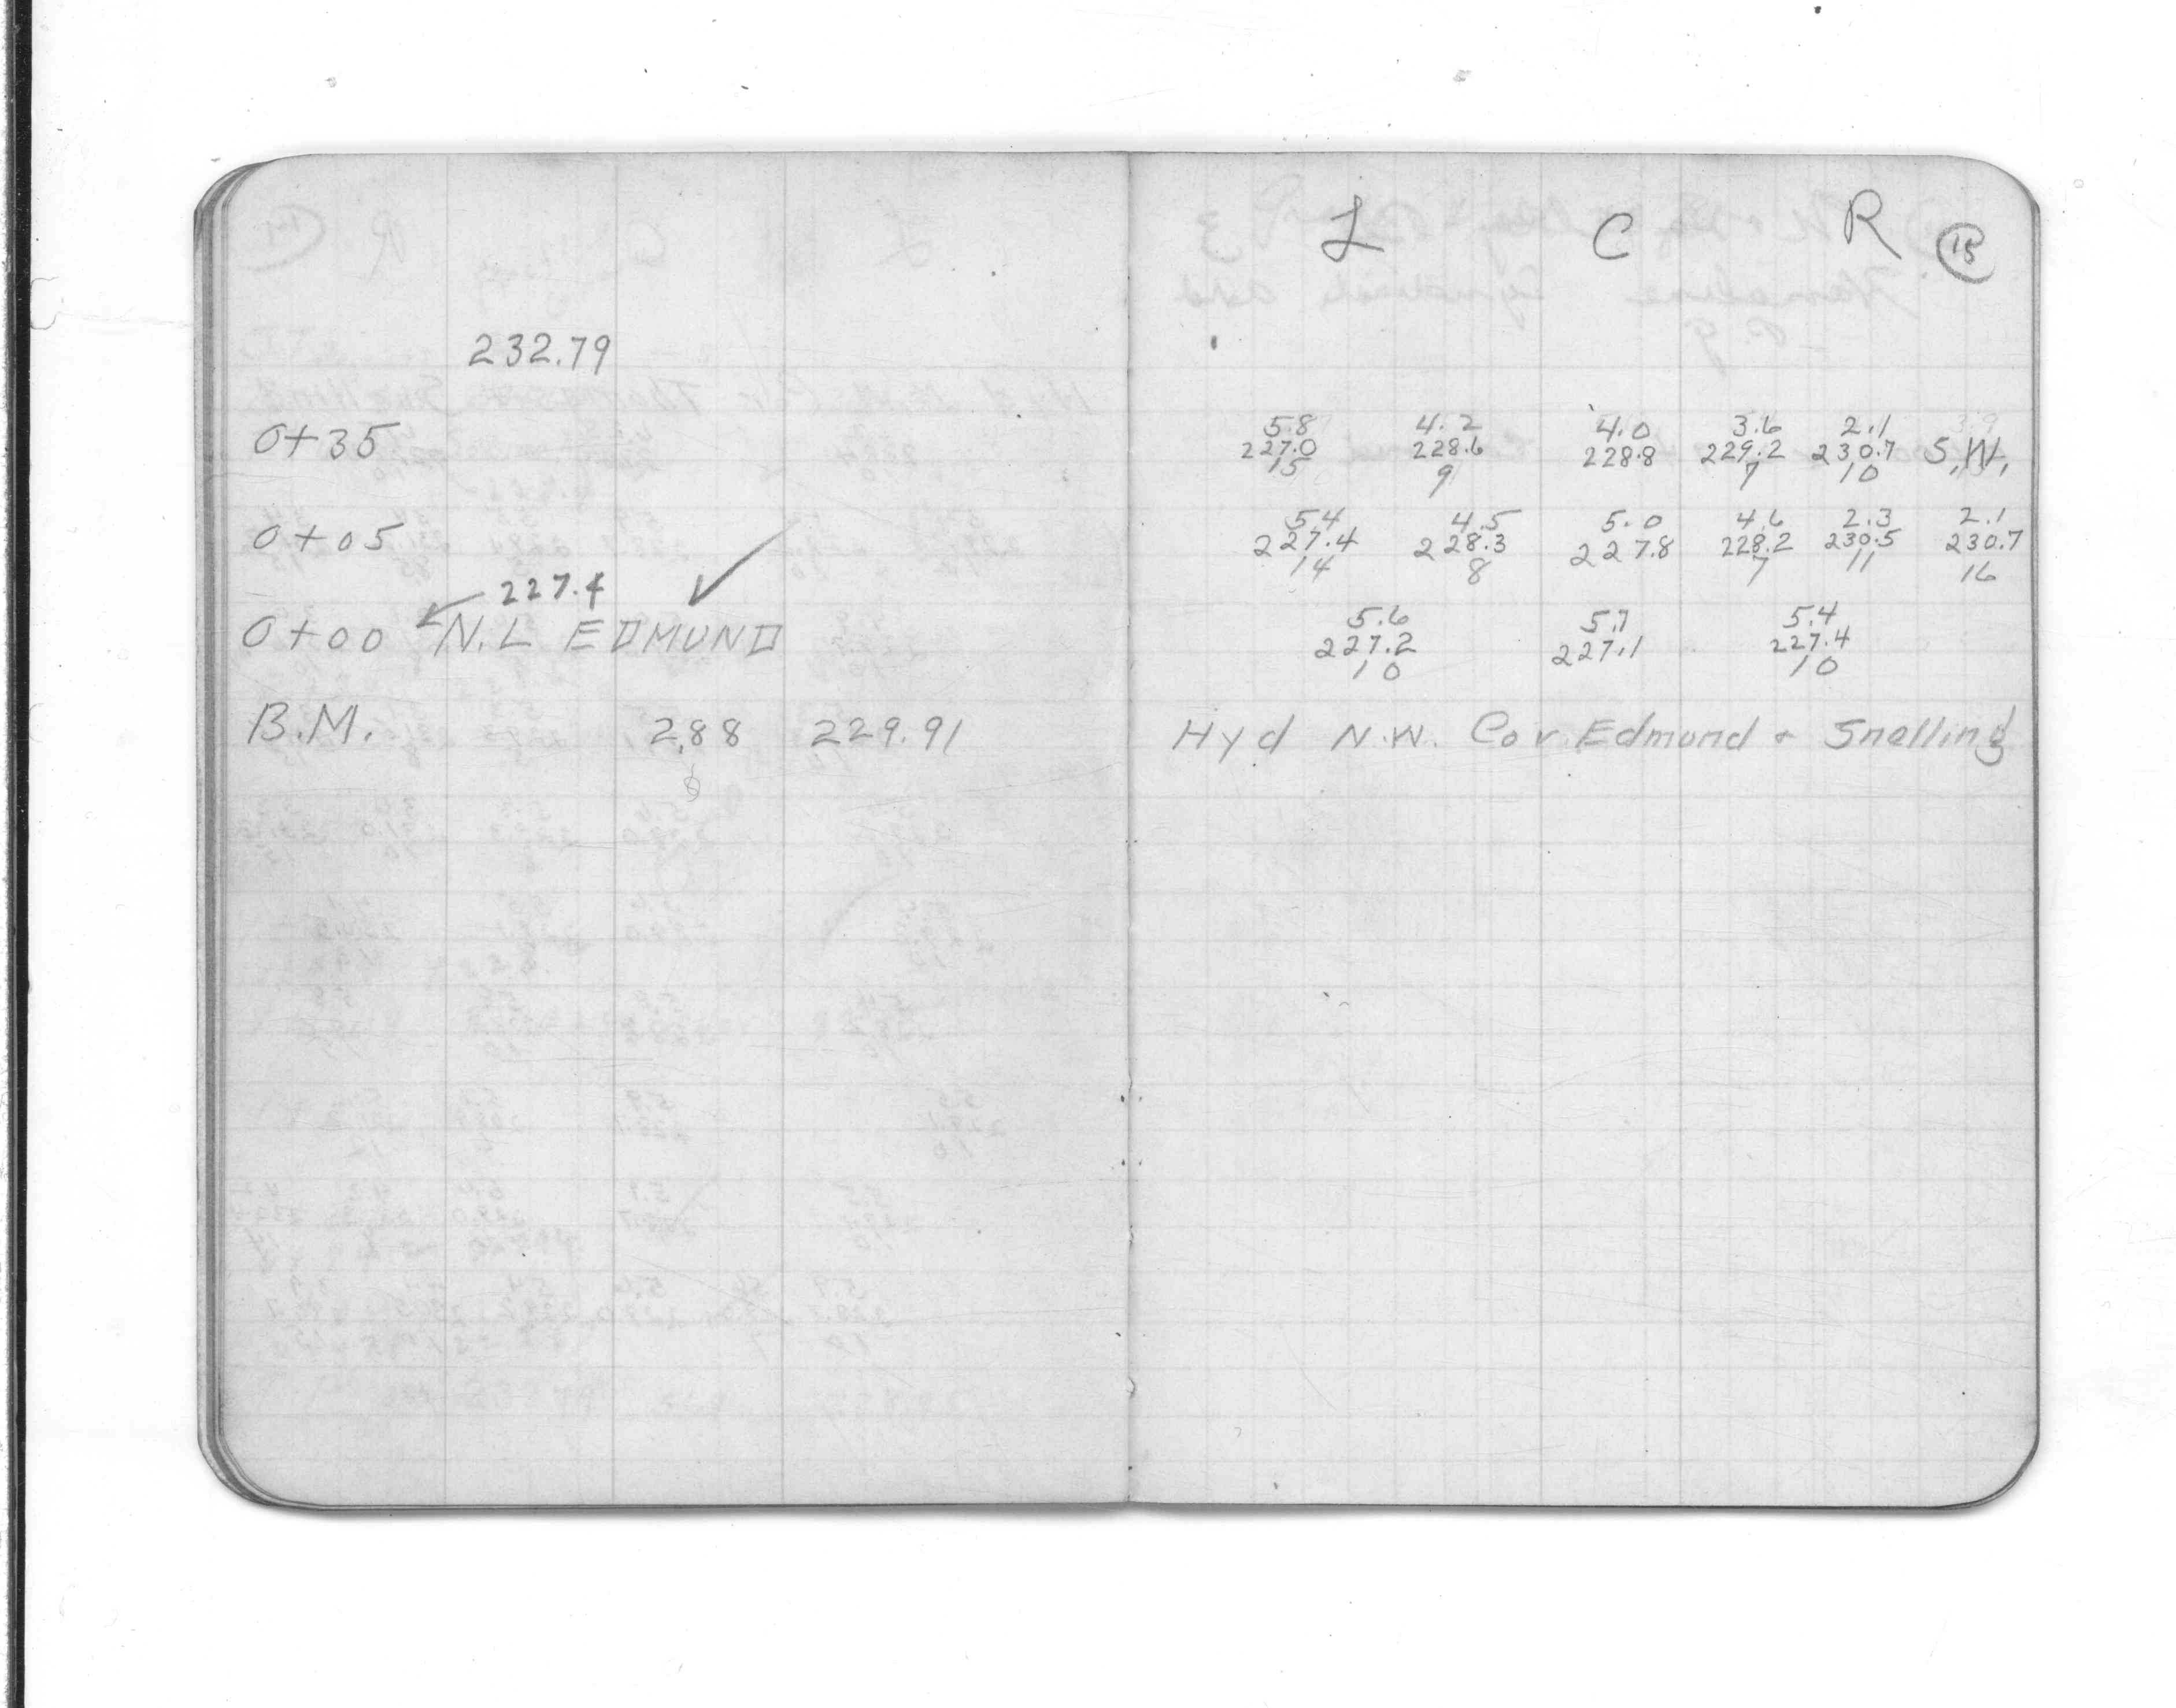 L C R 15
232.79
5.8 4.2 4.0 3.6 2.1
0+35 227.0 228.6 228.8 229.2 230.7 S.W.
15 9 7 10
5.4 4.5 5.0 4.6 2.3 2.1
0+05 227.4 228.3 227.8 228.2 230.5 230.7
14 8 7 11 16
227.4 5.6 5.7 5.4
0+00 N.L EDMUND 227.2 227.1 227.4
10 10
B.M. 2.88 229.91 Hyd N.W. Cor Edmund + Snelling